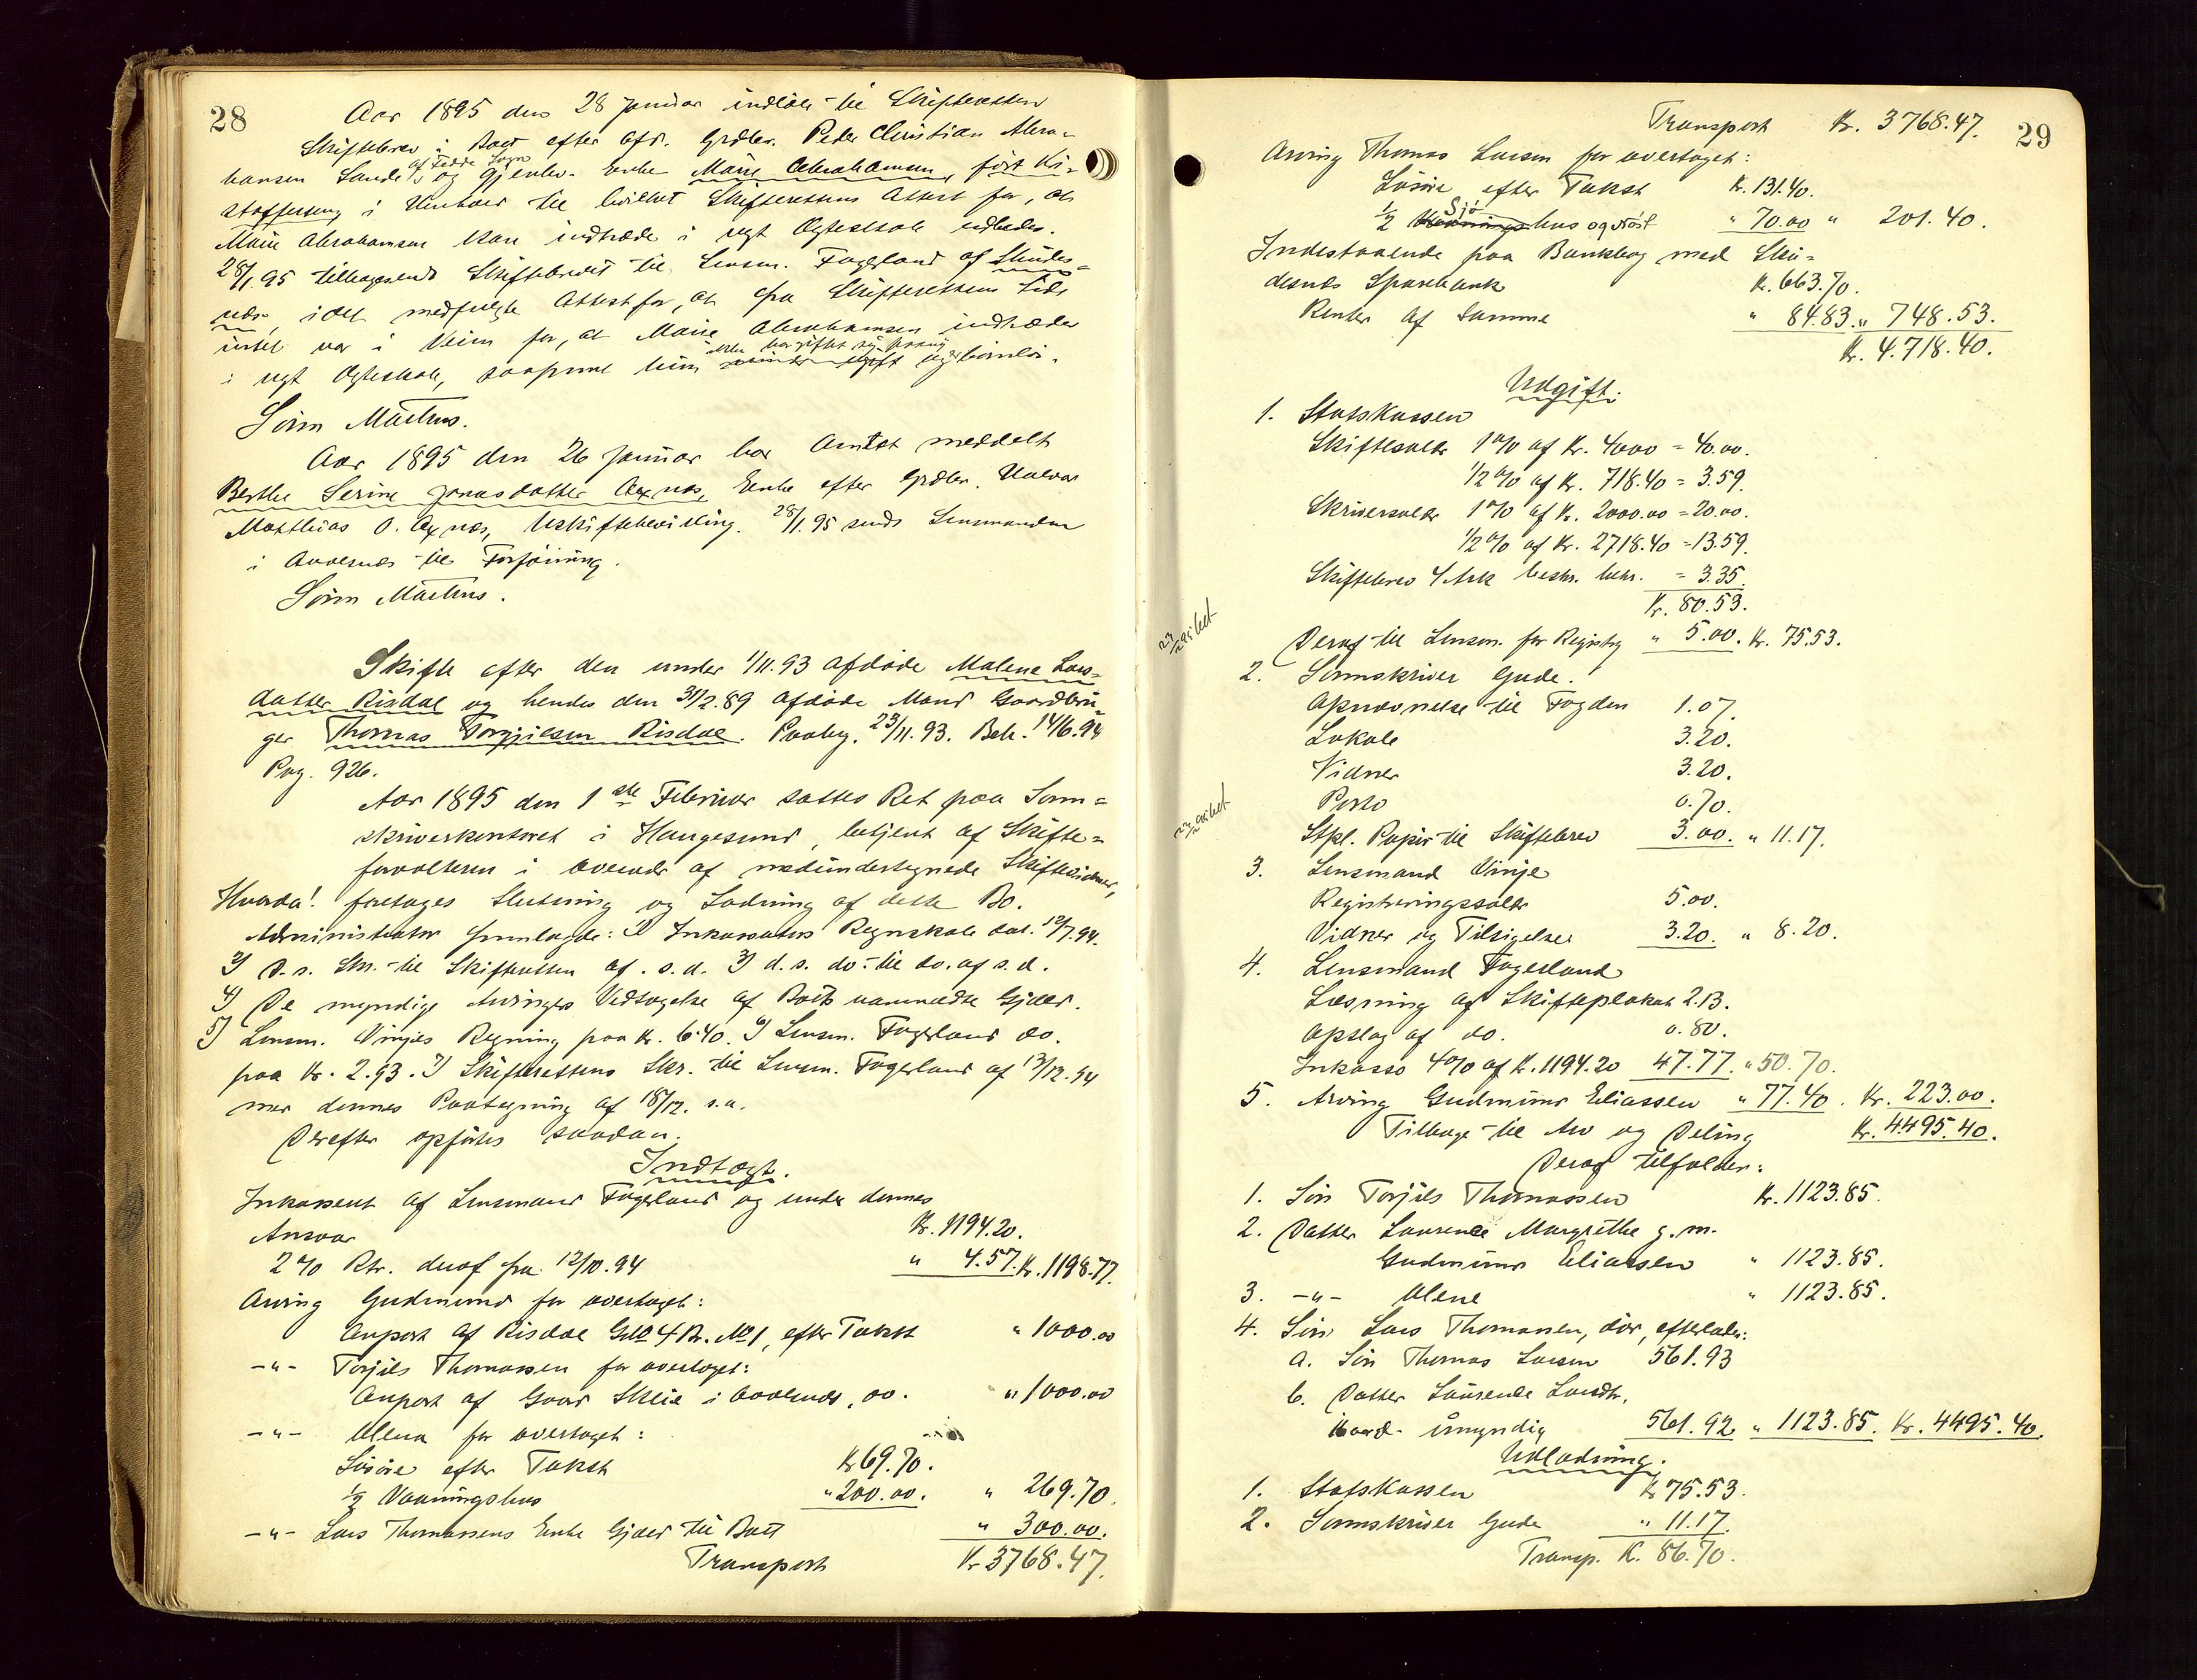 28
Aar 1895 den 28 Januar indløb til Skifteretten
Skiftebrev i Boet efter afd. Grdbr. Peder Christian Abra-
hamsen Sande af Tedde Sogn og gjenlev. Enke Marie Abrahamsen, født Kri-
stoffersen, i Henhold til hvilket Skifterettens Attest for, at
Marie Abrahamsen kan indtræde i nyt Ægteskab udbedes.
28/1.95 tilbagesendt Skiftebrevet til Lensm. Fagerland af Skudes-
næs, idet medfulgte Attest for, at fra Skifterettens Side
intet var i Veien for, at Marie Abrahamsen indtræder
i nyt Ægteskab, saafremt hun ikke har giftet sig paany og er barnløs.
Sørn Martens.
Aar 1895 den 26 Januar har Amtet meddelt
Berthe Serine Jonasdatter Axnæs, Enke efter Grdbr. Halvor
Matthias O. Axnæs, Uskiftebevilling. 28/1.95 sendt Lensmanden
i Avaldsnæs til Forføining.
Sørn Martens.
Skifte efter den under 1/11.93 afdøde Malene Lars-
datter Risdal og hendes den 31/2.89 afdøde Mand Gaardbru-
ger Thomas Torgjilsen Risdal. Paabg. 23/11.93. Beh. 14/6.94
Pag. 926.
Aar 1895 den 1ste Februar sattes Ret paa Soren-
skriverkontoret i Haugesund, betjent af Skifte-
forvalteren i Overvær af medundertegnede Skiftevidner,
Hvorda! foretages Slutning og Lodning af dette Bo.
Administrator fremlagde: 1) Inkassators Regnskab dat. 12/7.94.
2) D.s. Skr. til Skifteretten af s.d. 3) d.s. do. til do. af s.d.
4) De myndige Arvingers Vedtagelse af Boets namnedte Gjæld.
5) Lensm. Vinjes Regning paa Kr. 6.40. 6) Lensm. Fagerland do.
paa Kr. 2.93. 7) Skifterettens Skr. til Lensm. Fagerland af 13/12.94
mer dennes Paategning af 18/12. s.a.
Derefter opførtes saadan:
Indtægt.
Inkasseret af Lensmand Fagerland og under dennes
Ansvar Kr. 1194.20.
2 % Rtr. deraf fra 12/10.94 " 4.57. Kr. 1198.77.
Arving Gudmund for overtaget:
Anpart af Risdal GNo 4 Br. No 1, efter Takst " 1000.00
-"- Torjils Thomassen for overtaget:
Anpart af Gaard Skeie i Avaldsnæs, do. " 1000.00
-"- Olena for overtaget:
Løsøre efter Takst Kr 69.70.
1/2 Vaaningshus " 200.00. " 269.70.
-"- Lars Thomassens Enke Gjæld til Boet " 300.00.
Transport Kr 3768.47.
29
Transport Kr. 3768.47.
Arving Thomas Larsen for overtaget:
Løsøre efter Takst Kr. 131.40.
1/2 Sjøhus og Nøst " 70.00 " 201.40.
Indestaaende paa Bankbog med Sku-
desnæs Sparebank Kr. 663.70.
Renter af samme " 84.83. " 748.53.
Kr. 4.718.40.
Udgift.
1. Statskassen
Skiftesalær 1 % af Kr. 4000 = 40.00.
1/2 % af Kr. 718.40 = 3.59.
Skriversalær 1 % af Kr. 2000.00 = 20.00.
1/2 % af Kr. 2718.40 = 13.59.
Skiftebrev 4 Ark beskr. behr. = 3.35.
Kr. 80.53.
Deraf til Lensm. for Registrg " 5.00. Kr. 75.53.
2. Sorenskriver Gude.
Opnævnelse til Fogden 1.07.
Lokale 3.20.
Vidner 3.20.
Porto 0.70.
Stpl. Papir til Skiftebrev 3.00. " 11.17.
3. Lensmand Vinje
Registreringssalær 5.00.
Vidner og Tilsigelser 3.20. " 8.20.
4. Lensmand Fagerland
Læsning af Skifteplakat 2.13.
Opslag af do. 0.80.
Inkasso 4 % af Kr. 1194.20 47.77. " 50.70.
5. Arving Gudmund Eliassen " 77.40. Kr. 223.00.
Tilbage til Arv og Deling Kr. 4495.40.
Deraf tilfalder:
1. Søn Torjils Thomassen Kr. 1123.85.
2. Datter Laurence Margrethe g.m.
Gudmund Eliassen " 1123.85.
3. -"- Olene " 1123.85.
4. Søn Lars Thomassen, død, efterlader:
a. Søn Thomas Larsen 561.93
b. Datter Laurence Larsdtr.
umyndig 561.92 " 1123.85. Kr. 4495.40.
Udlodning.
1. Statskassen Kr 75.53.
2. Sorenskriver Gude " 11.17.
Transp. K. 86.70.